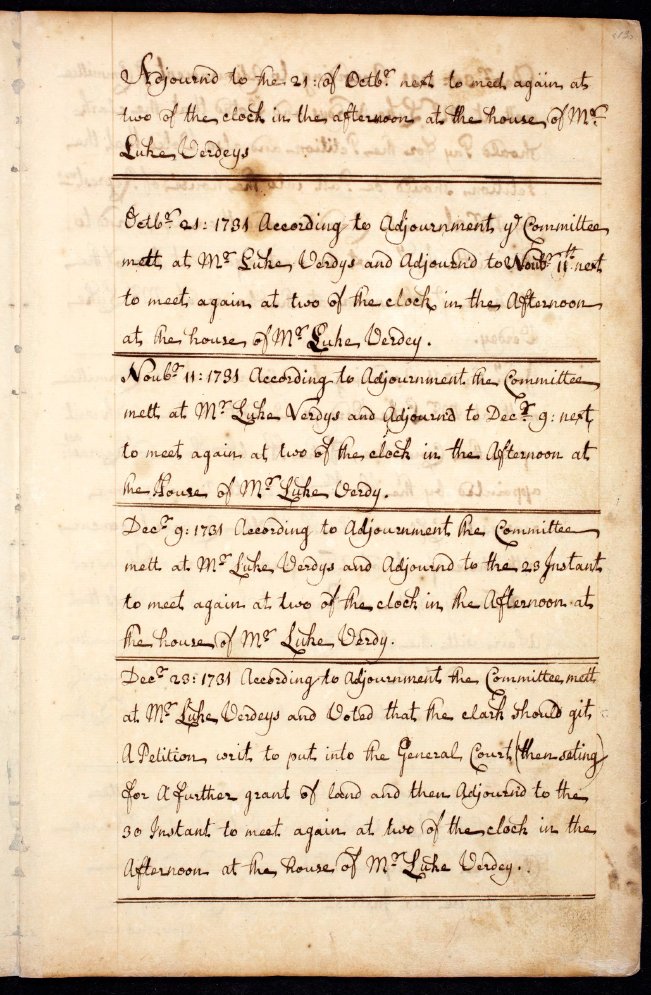 Adjournd to the 21: of Octbr next to meet again at
two of the clock in the afternoon at the house of Mr
Luke Verdeys
Octbr 21: 1731 According to Adjournment ye Committee
mett at Mr Luke Verdys and Adjournd to Novbr 11th next
to meet again at two of the clock in the Afternoon
at the house of Mr Luke Verdey.
Novbr 11: 1731 According to Adjournment the Committee
mett at Mr Luke Verdys and Adjournd to Decr 9: next
to meet again at two of the clock in the Afternoon at
the House of Mr Luke Verdy.
Decr 9: 1731 According to Adjournment the Committee
mett at Mr Luke Verdys and Adjournd to the 23 Instant
to meet again at two of the clock in the Afternoon at
the house of Mr Luke Verdy.
Decr 23: 1731 According to Adjournment the Committee mett
at Mr Luke Verdeys and Voted that the clark should git
A Petition writ to put into the General Court (then seting)
for A further grant of land and then Adjournd to the
30 Instant to meet again at two of the clock in the
Afternoon at the house of Mr Luke Verdey.